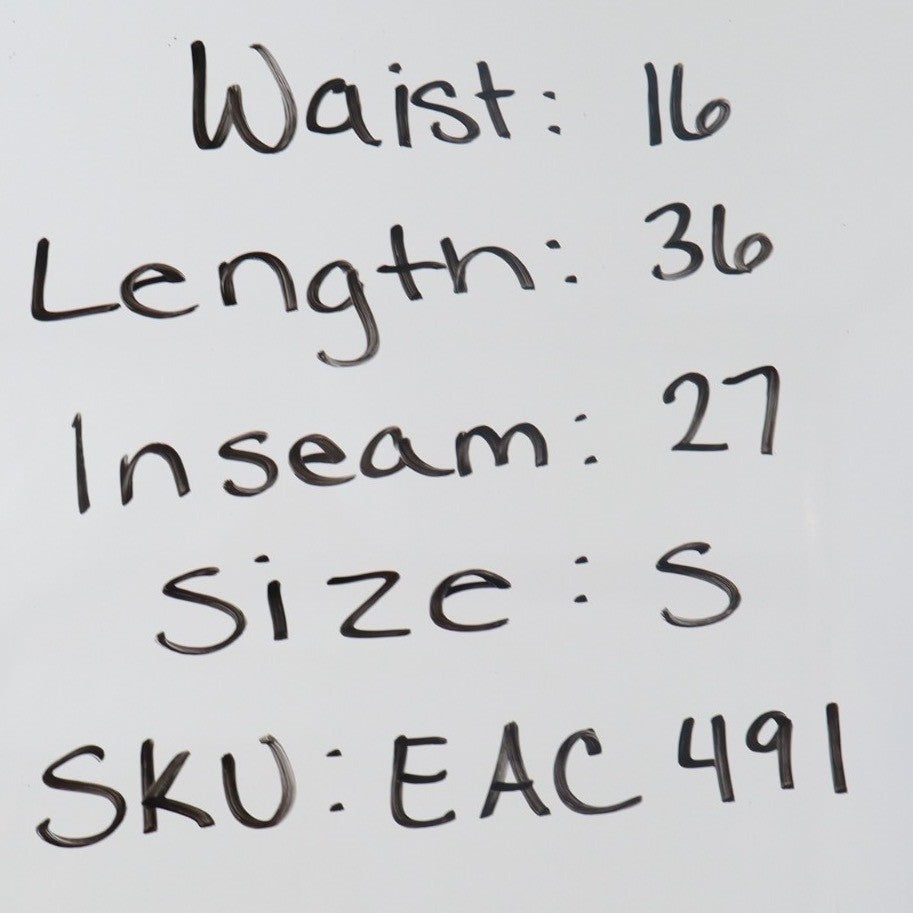 Waist: 16
Length: 36
Inseam: 27
Size: S
SKU: EAC 491